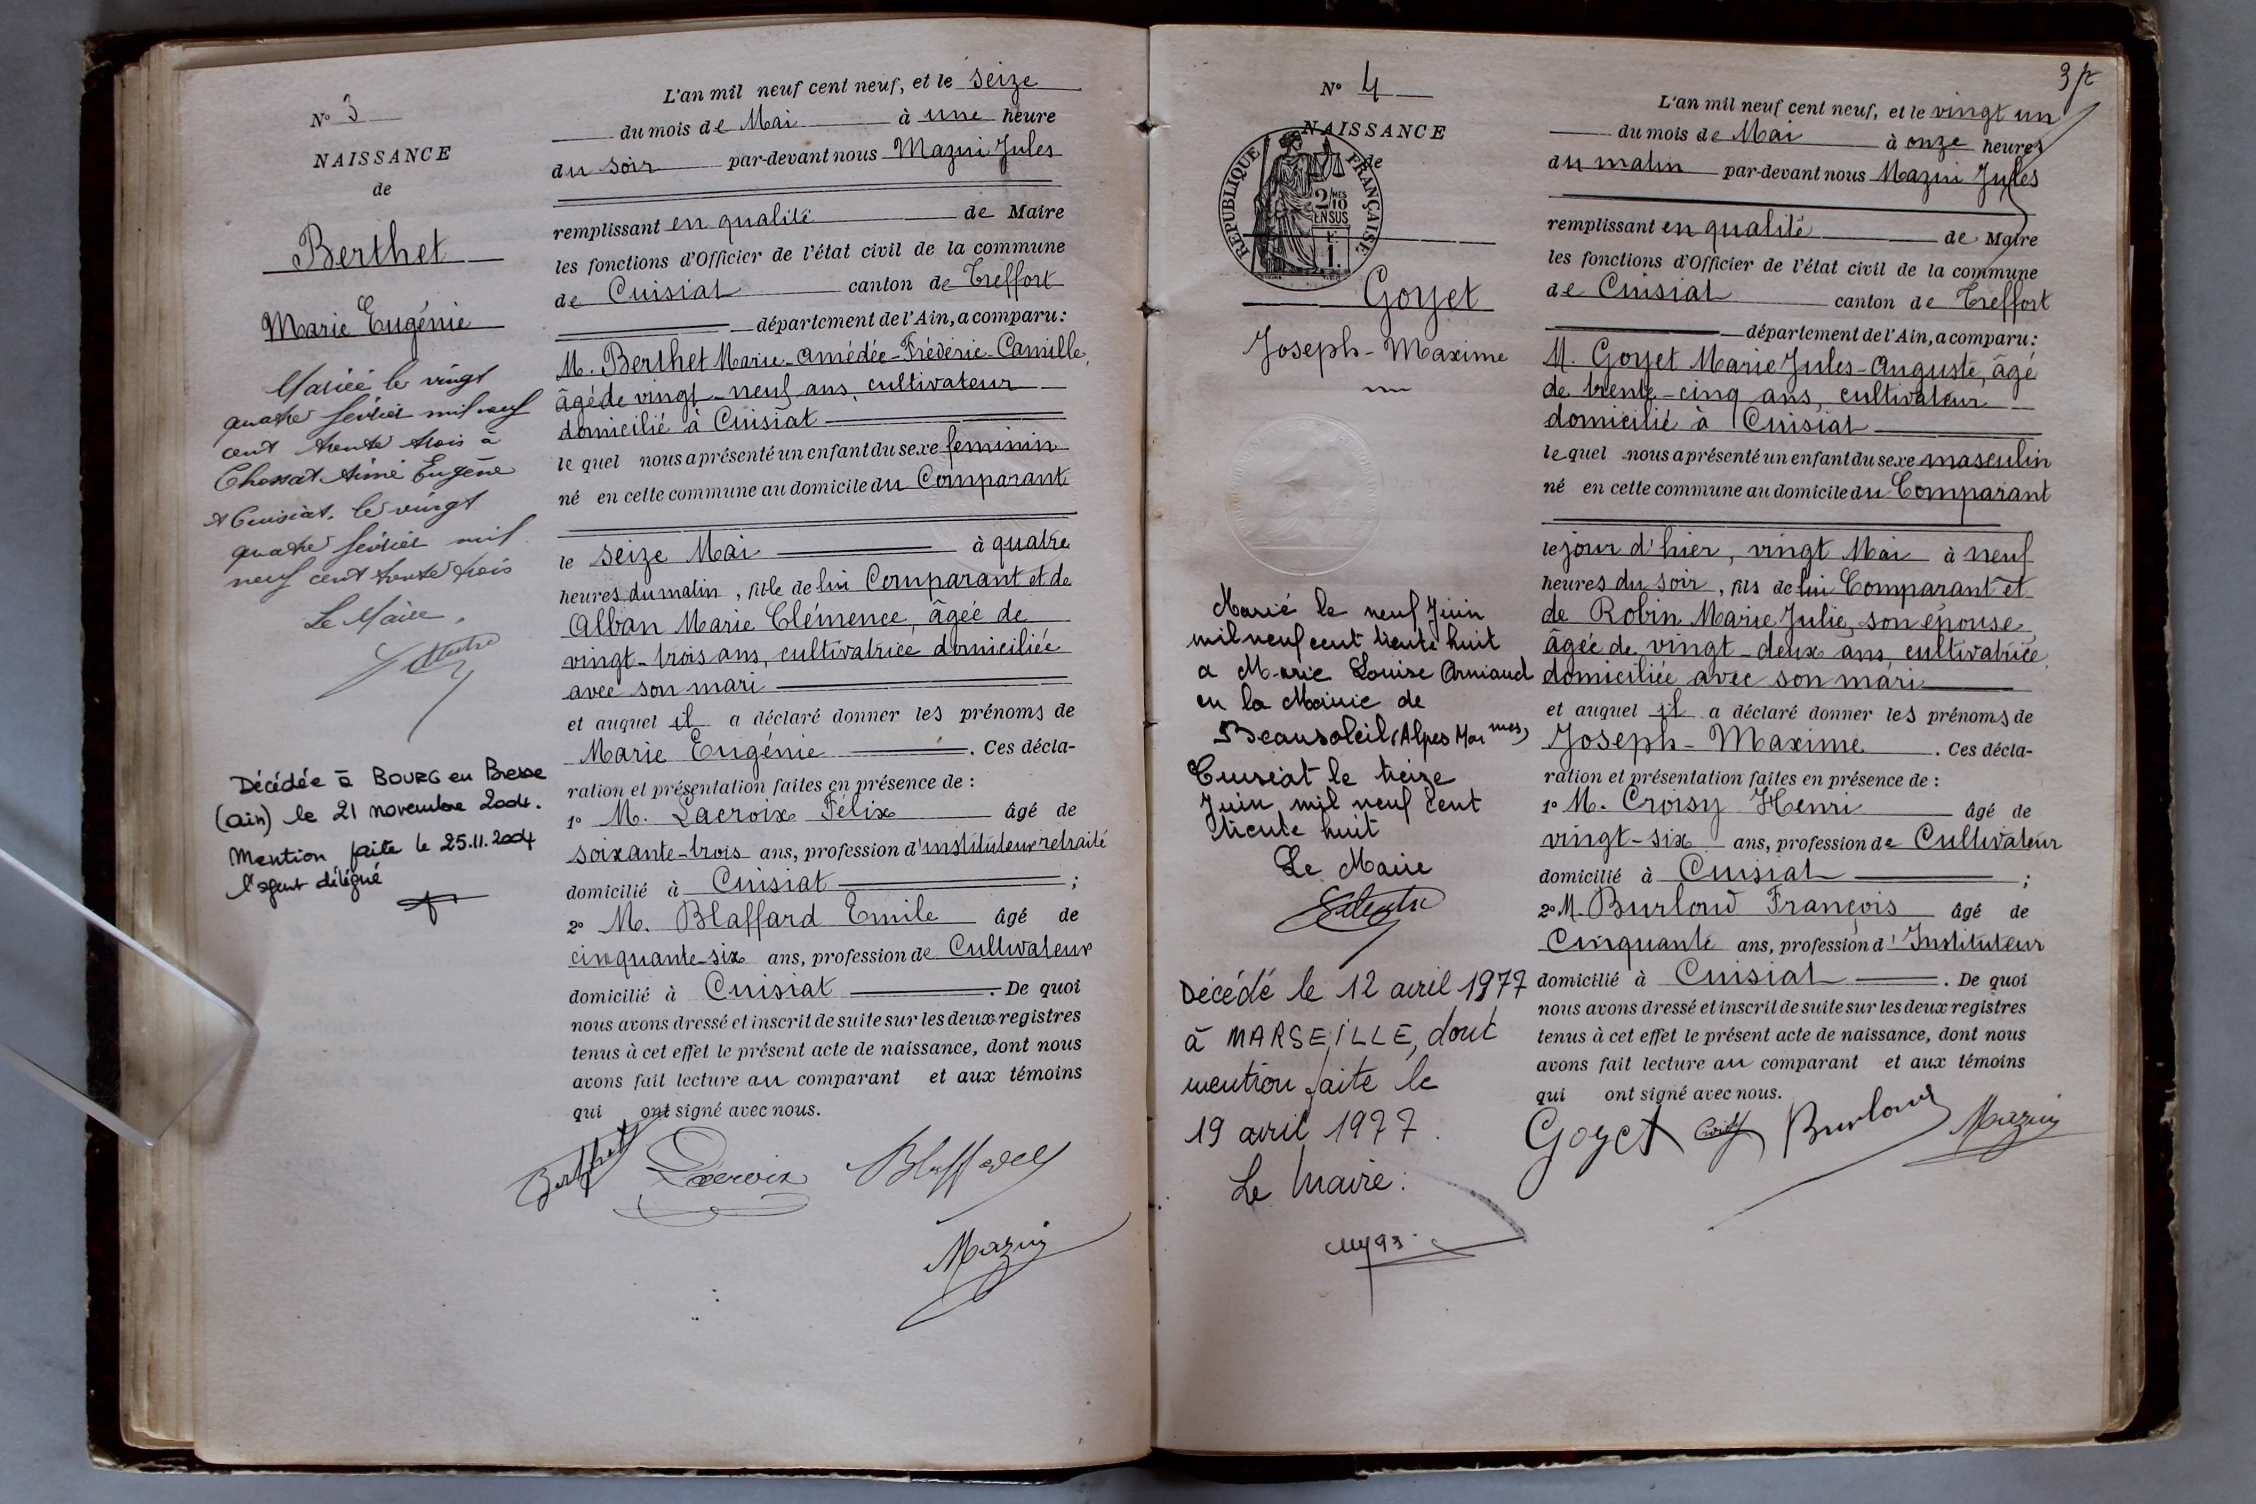 N° 3
NAISSANCE
de
Berthet
Marie Eugénie
Mariée le vingt
quatre février mil neuf
cent trente trois à
Chossat Aimé Eugène
A Cuisiat, le vingt
quatre février mil
neuf cent trente trois
Le Maire,
Décédée à BOURG en Bresse
(ain) le 21 novembre 2004.
Mention faite le 25.11.2004
l'agent délégué
L'an mil neuf cent neuf, et le seize
du mois de Mai à une heure
du soir par-devant nous Mazui Jules
remplissant en qualité de Maire
les fonctions d'Officier de l'état civil de la commune
de Cuisiat canton de Treffort
département de l'Ain, a comparu:
M. Berthet Marie-Amédée-Frédéric-Camille,
âgé de vingt-neuf ans, cultivateur
domicilié à Cuisiat
le quel nous a présenté un enfant du sexe feminin
né en cette commune au domicile du Comparant
le seize Mai à quatre
heures du matin, fille de lui Comparant et de
Alban Marie Clémence, âgée de
vingt-trois ans, cultivatrice domiciliée
avec son mari
et auquel il a déclaré donner les prénoms de
Marie Eugénie. Ces décla-
ration et présentation faites en présence de :
1° M. Lacroix Félix âgé de
soixante-trois ans, profession d'instituteur retraité
domicilié à Cuisiat ;
2° M. Blaffard Emile âgé de
cinquante-six ans, profession de Cultivateur
domicilié à Cuisiat. De quoi
nous avons dressé et inscrit de suite sur les deux registres
tenus à cet effet le présent acte de naissance, dont nous
avons fait lecture au comparant et aux témoins
qui ont signé avec nous.
Berthet Lacroix Blaffard
Mazui
3
N° 4
NAISSANCE
de
REPUBLIQUE FRANÇAISE
2/10 MES
EN SUS
1.
Goyet
Joseph-Maxime
Marié le neuf Juin
mil neuf cent trente huit
a Marie Louise Arniaud
en la Mairie de
Beausoleil (Alpes Mar mes)
Cuisiat le treize
Juin mil neuf cent
trente huit
Le Maire
Décédé le 12 avril 1977
à MARSEILLE, dont
mention faite le
19 avril 1977.
Le Maire:
L'an mil neuf cent neuf, et le vingt un
du mois de Mai à onze heures
du matin par-devant nous Mazui Jules
remplissant en qualité de Maire
les fonctions d'Officier de l'état civil de la commune
de Cuisiat canton de Treffort
département de l'Ain, a comparu:
M. Goyet Marie Jules-Auguste, âgé
de trente-cinq ans, cultivateur
domicilié à Cuisiat
le quel nous a présenté un enfant du sexe masculin
né en cette commune au domicile du Comparant
le jour d'hier, vingt Mai à neuf
heures du soir, fils de lui Comparant et
de Robin Marie Julie, son épouse,
âgée de vingt-deux ans, cultivatrice,
domiciliée avec son mari
et auquel il a déclaré donner les prénoms de
Joseph-Maxime. Ces décla-
ration et présentation faites en présence de :
1° M. Croisy Henri âgé de
vingt-six ans, profession de Cultivateur
domicilié à Cuisiat ;
2° M. Burloud François âgé de
Cinquante ans, profession d'Instituteur
domicilié à Cuisiat. De quoi
nous avons dressé et inscrit de suite sur les deux registres
tenus à cet effet le présent acte de naissance, dont nous
avons fait lecture au comparant et aux témoins
qui ont signé avec nous.
Goyet Burloud Mazui